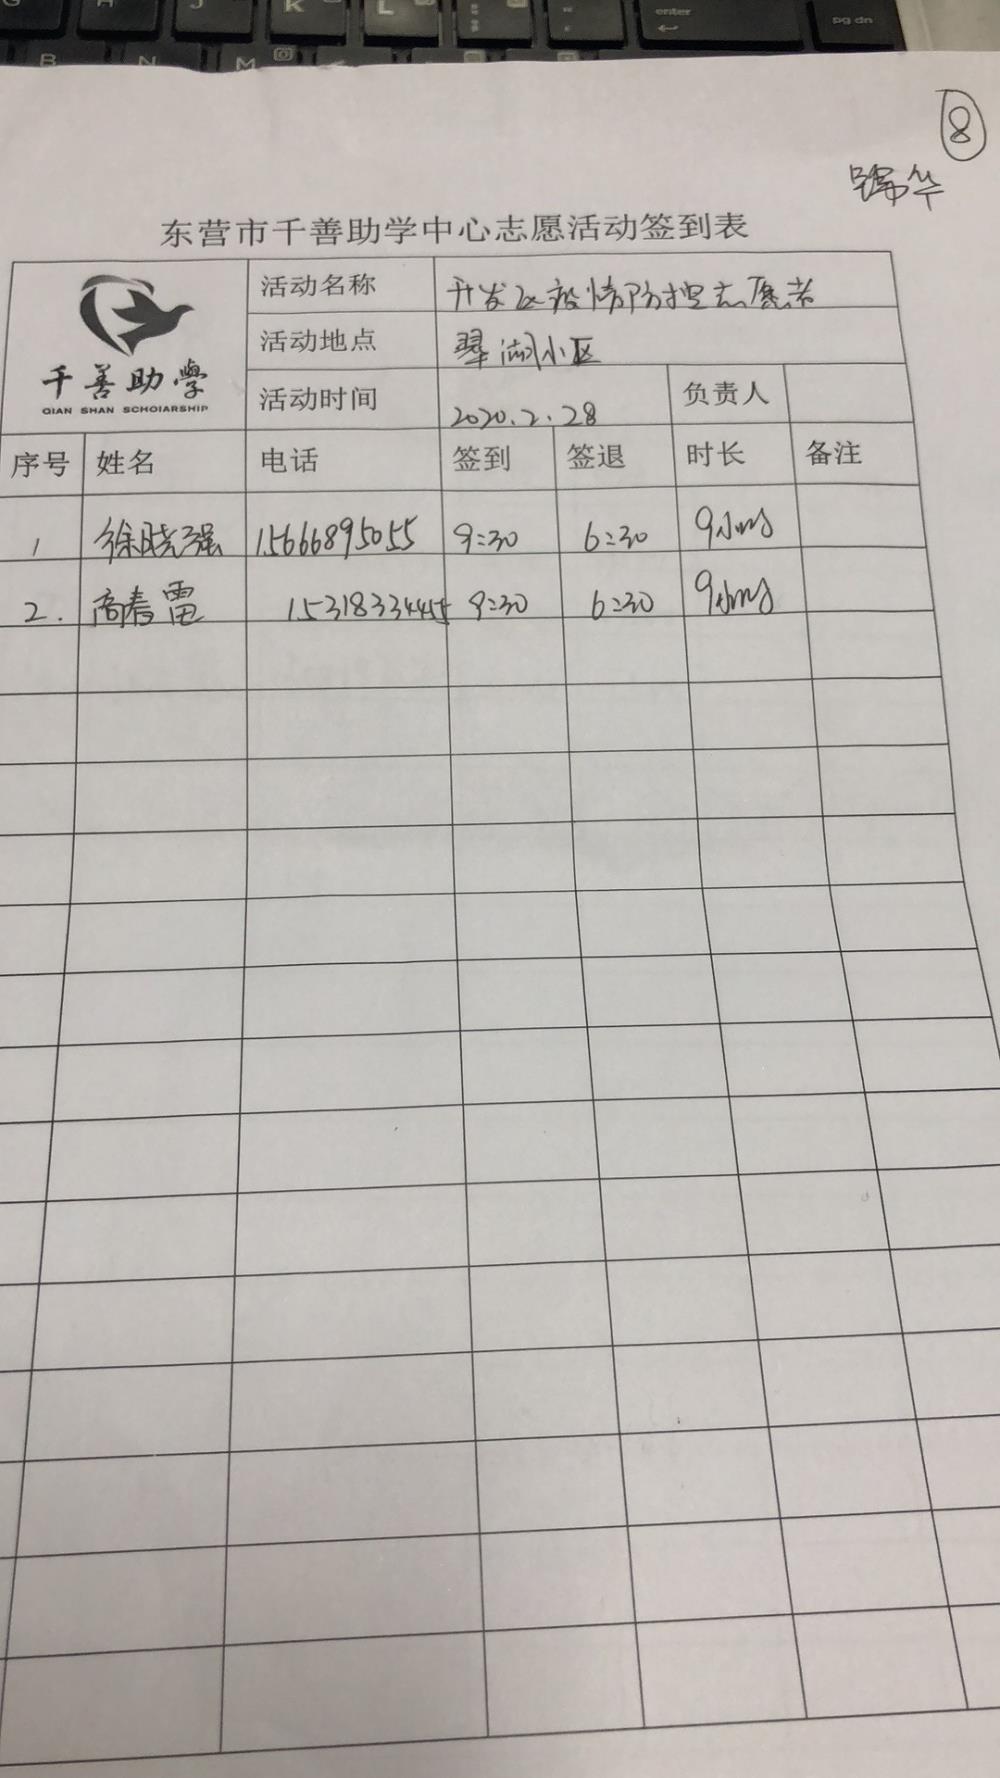 G H J K L enter pg dn
B N M
8
东营市千善助学中心志愿活动签到表
千善助學
QIAN SHAN SCHOIARSHIP
活动名称 开发区疫情防控志愿者
活动地点 翠湖小区
活动时间 2020.2.28 负责人
序号 姓名 电话 签到 签退 时长 备注
1 徐晓强 15666895055 9:30 6:30 9小时
2. 商春雷 15318334455 9:30 6:30 9小时